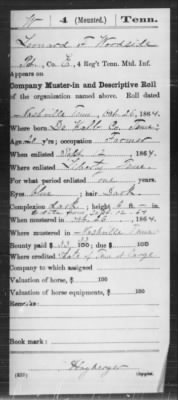 W | 4 (Mounted.) | Tenn.
Leonard F Woodside
, Co. E, 4 Reg't Tenn. Mtd. Inf.
Appears on
Company Muster-in and Descriptive Roll
of the organization named above. Roll dated
Nashville Tenn, 26, 1864.
Where born De Kalb Co. Tenn
Age y'rs; occupation Farmer
When enlisted Sept 2, 1864.
Where enlisted Liberty Tenn
For what period enlisted one years.
Eyes blue; hair Dark
Complexion Dark; height 6 ft. — in.
When mustered in , 1864.
Where mustered in Nashville Tenn
Bounty paid $ 33 ; due $
Where credited State of Tenn at Large
Company to which assigned
Valuation of horse, $
Valuation of horse equipments, $
Remarks:
Book mark:
Copyist.